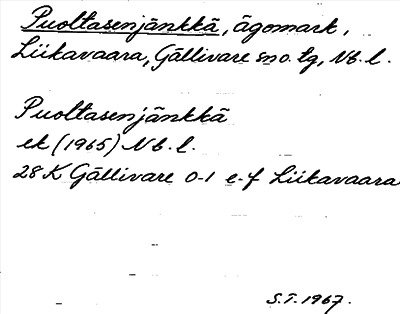 Puoltasenjänkkä, ägomark,
Liikavaara, Gällivare sn o. tg, Nb. l.
Puoltasenjänkkä
ek (1965) Nb. l.
28 K Gällivare 0-1 e-f Liikavaara
S.T. 1967.